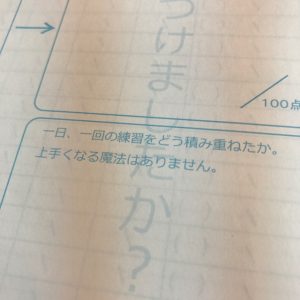 つけましたか？
→
／100点
一日、一回の練習をどう積み重ねたか。
上手くなる魔法はありません。